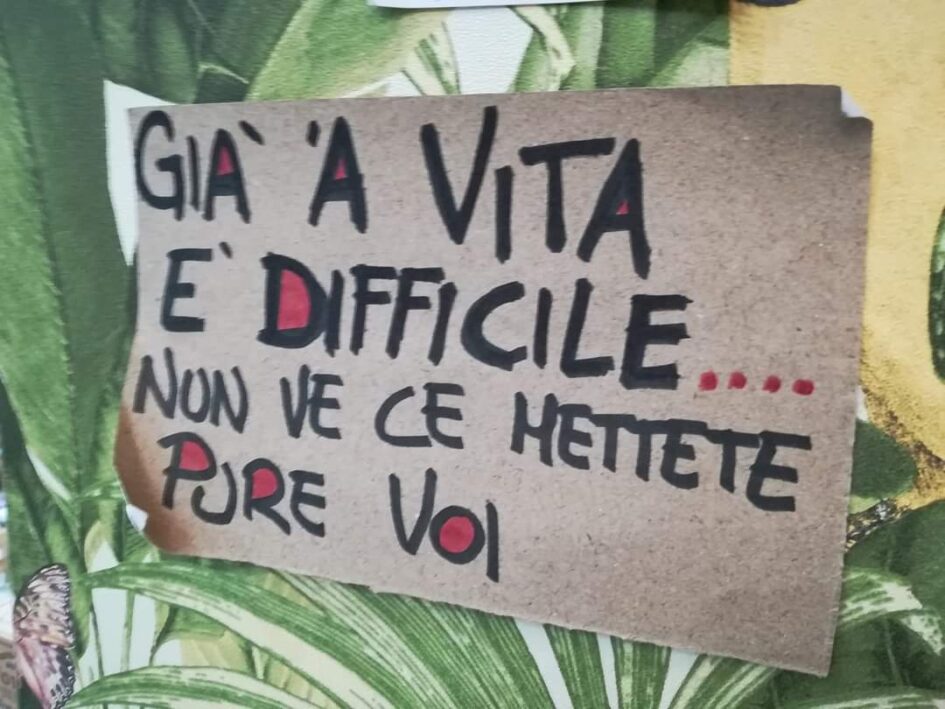 GIÀ 'A VITA
E' DIFFICILE....
NUN VE CE METTETE
PURE VOI